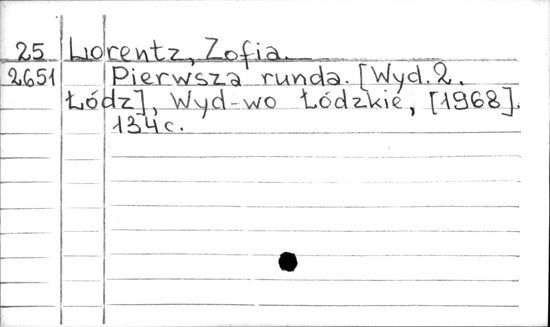 25 Lorentz, Zofia.
2651 Pierwsza runda. [Wyd. 2.
Łódz], Wyd-wo Łódzkie, [1968].
134 c.